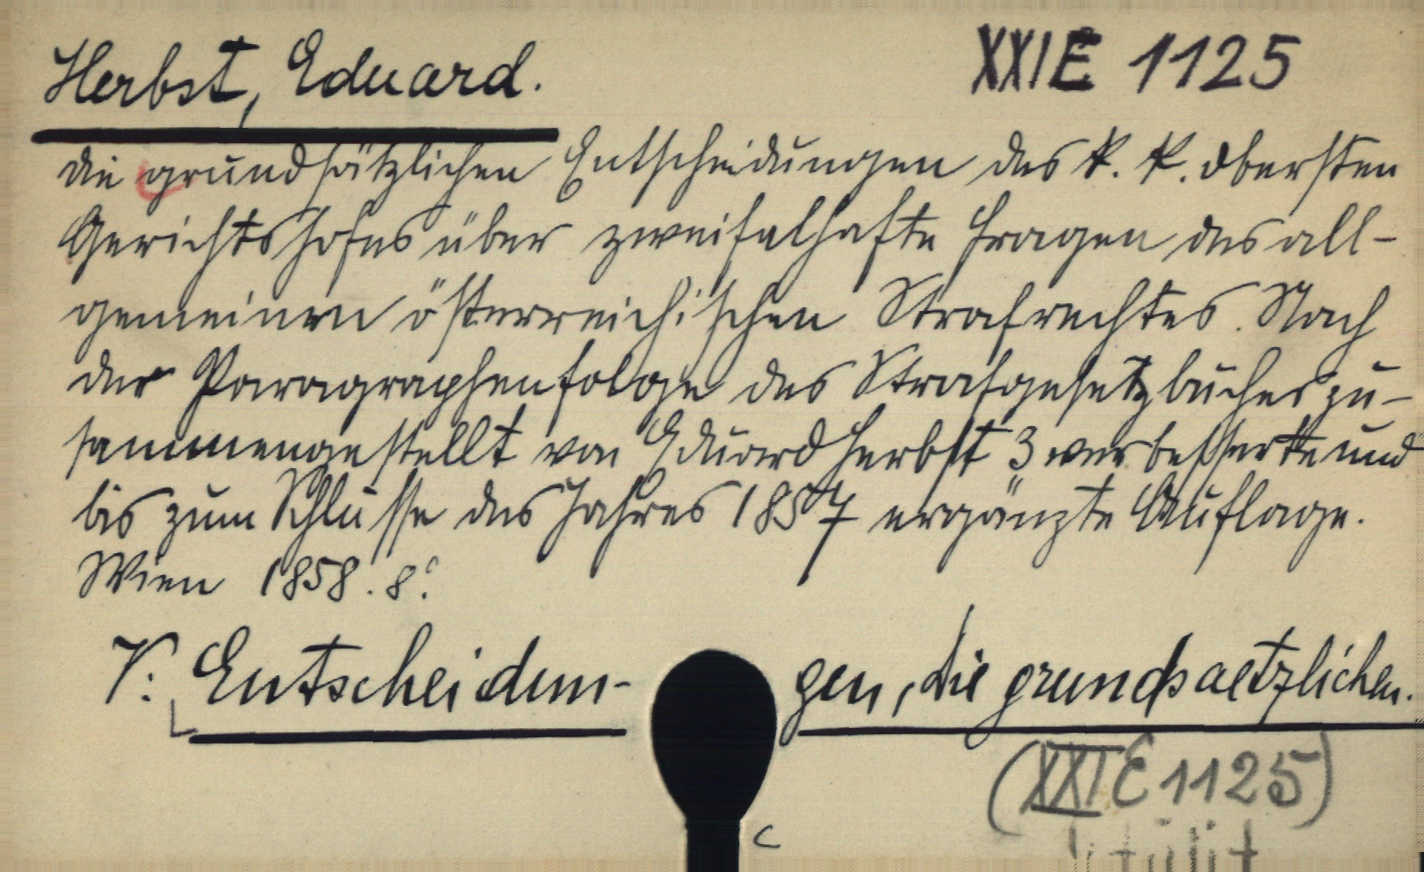 Herbst, Eduard. XXI E 1125
Die grundsätzlichen Entscheidungen des k. k. obersten
Gerichtshofes über zweifelhafte Fragen des all-
gemeinen österreichischen Strafrechtes. Nach
der Paragraphenfolge des Strafgesetzbuches zu-
sammengestellt von Eduard Herbst 3 verbesserte und
bis zum Schlusse des Jahres 1857 ergänzte Auflage.
Wien 1858. 8°.
V: Entscheidun- gen, die grundsaetzlichen.
(XXI E 1125)
c